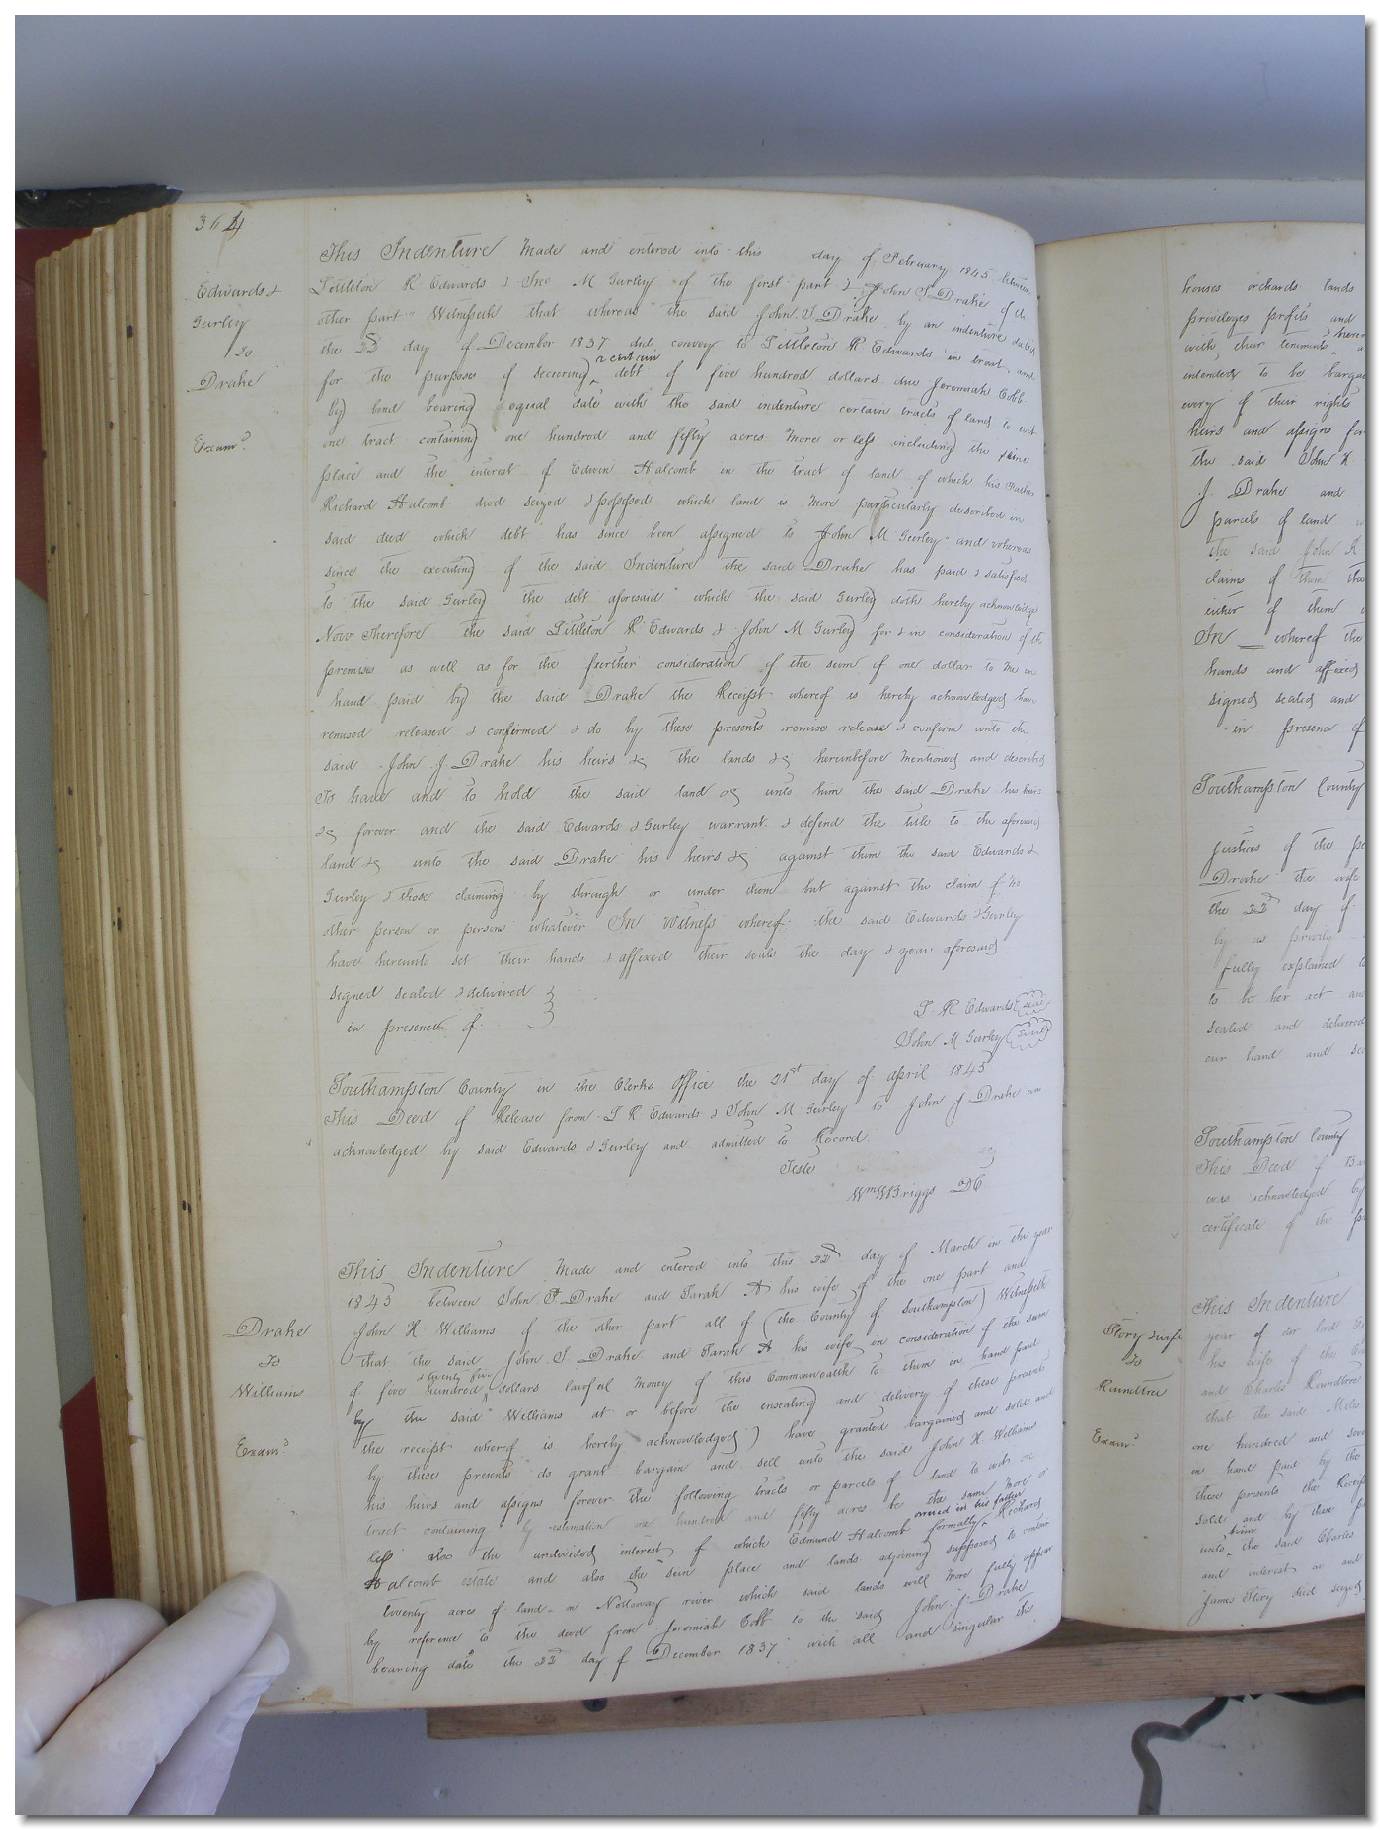 364
Edwards &
Gurley
To
Drake
Exam.d
This Indenture Made and entered into this day of February 1845 between
Littleton R Edwards & Jno M Gurley of the first part & John J Drake of the
other part Witnesseth that whereas the said John J Drake by an indenture dated
the 22d day of December 1837 did convey to Littleton R Edwards in trust, and
for the purposes of securing a certain debt of five hundred dollars due Jeremiah Cobb
by bond bearing equal date with the said indenture certain tracts of land to wit
one tract containing one hundred and fifty acres more or less including the
place and the interest of Edwin Halcomb in the tract of land of which his Father
Richard Halcomb died seized & possessed which land is more particularly described in
said deed which debt has since been assigned to John M Gurley and whereas
since the executing of the said Indenture the said Drake has paid & satisfied
to the said Gurley the debt aforesaid which the said Gurley doth hereby acknowledge
Now Therefore the said Littleton R Edwards & John M Gurley for & in consideration of the
premises as well as for the further consideration of the sum of one dollar to me in
hand paid by the said Drake the Receipt whereof is hereby acknowledged have
remised released & confirmed & do by these presents remise release & confirm unto the
said John J Drake his heirs &c the lands &c hereinbefore mentioned and described
To have and to hold the said land &c unto him the said Drake his heirs
&c forever and the said Edwards & Gurley warrant & defend the title to the aforesaid
land &c unto the said Drake his heirs &c against them the said Edwards &
Gurley & those claiming by through or under them but against the claim of no
other person or persons whatever In Witness whereof the said Edwards & Gurley
have hereunto set their hands & affixed their seals the day & year aforesaid
signed sealed & delivered
in presence of
L R Edwards seal
John M Gurley seal
Southampton County in the Clerks Office the 21st day of April 1845
This Deed of Release from L R Edwards & John M Gurley to John J Drake was
acknowledged by said Edwards & Gurley and admitted to Record
Teste
Wm W Briggs DC
Drake
To
Williams
Exam.d
This Indenture Made and entered into this 22d day of March in the year
1845 between John J Drake and Sarah A his wife of the one part and
John K Williams of the other part all of (the County of Southampton) Witnesseth
that the said John J Drake and Sarah A his wife in consideration of the sum
of five hundred seventy five dollars lawful money of this Commonwealth to them in hand paid
by the said Williams at or before the ensealing and delivery of these presents
the receipt whereof is hereby acknowledged) have granted bargained and sold and
by these presents do grant bargain and sell unto the said John K. Williams
his heirs and assigns forever the following tracts or parcels of land to wit one
tract containing by estimation one hundred and fifty acres be the same more or
less also the undivided interest of which Edmund Halcomb formally owned in his father Richard
Halcomb estate and also the place and lands adjoining supposed to contain
twenty acres of land on Nottoway river which said lands will more fully appear
by reference to the deed from Jeremiah Cobb to the said John J Drake
bearing date the 22d day of December 1837 with all and singular the
houses orchards lands
privileges profits and
with, their tenements
intended to be
every of their rights
heirs and assigns
the said John K
J Drake and
parcels of land
the said John K
claims of them
either of them
In whereof the
hands and affixed
signed sealed and
in presence of
Southampton County
Justices of the
Drake the wife
the 22d day of
by us privily
fully explained
to be her act and
sealed and delivered
our hand and
Southampton County
This Deed of
was acknowledged by
certificate of the
Story
To
Roundtree
Exam.d
This Indenture
year of our lord
his wife of the
and Charles Roundtree
that the said
one hundred and
in hand paid by the
these presents the
sold and by these
unto the said Charles
and interest in and
James Story died seized